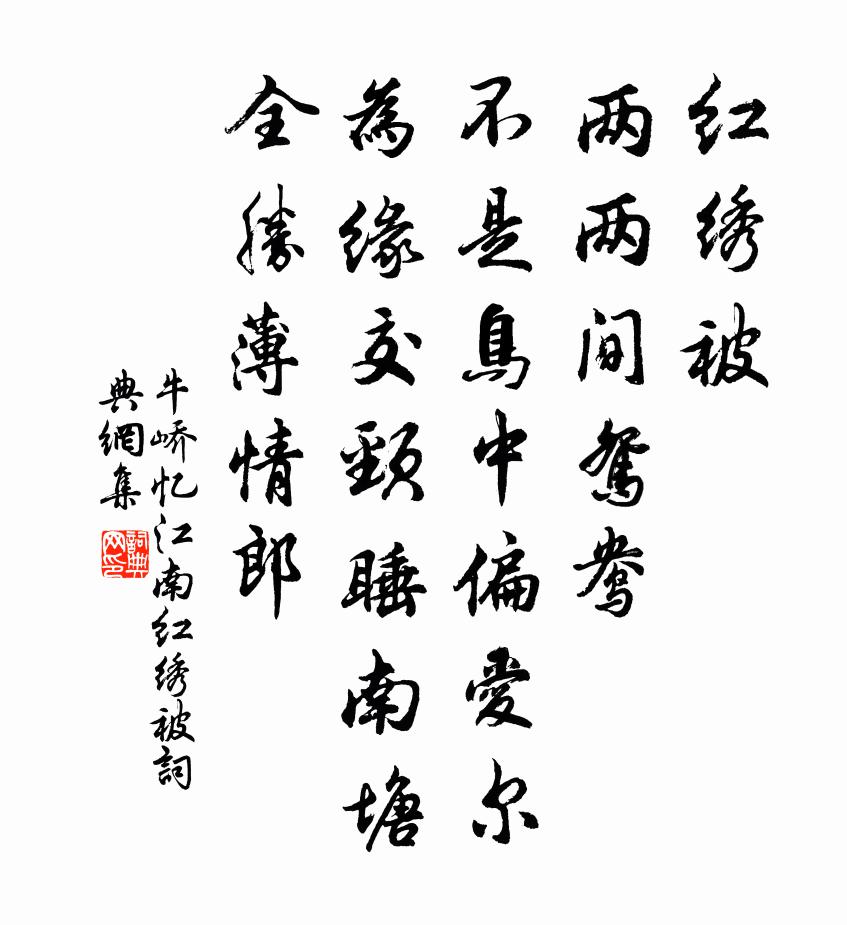 红绣被
两两间鸳鸯
不是鳥中偏愛尔
為缘交頸睡南塘
全勝薄情郎
牛峤忆江南红绣被詞
典網集
詞典
网印